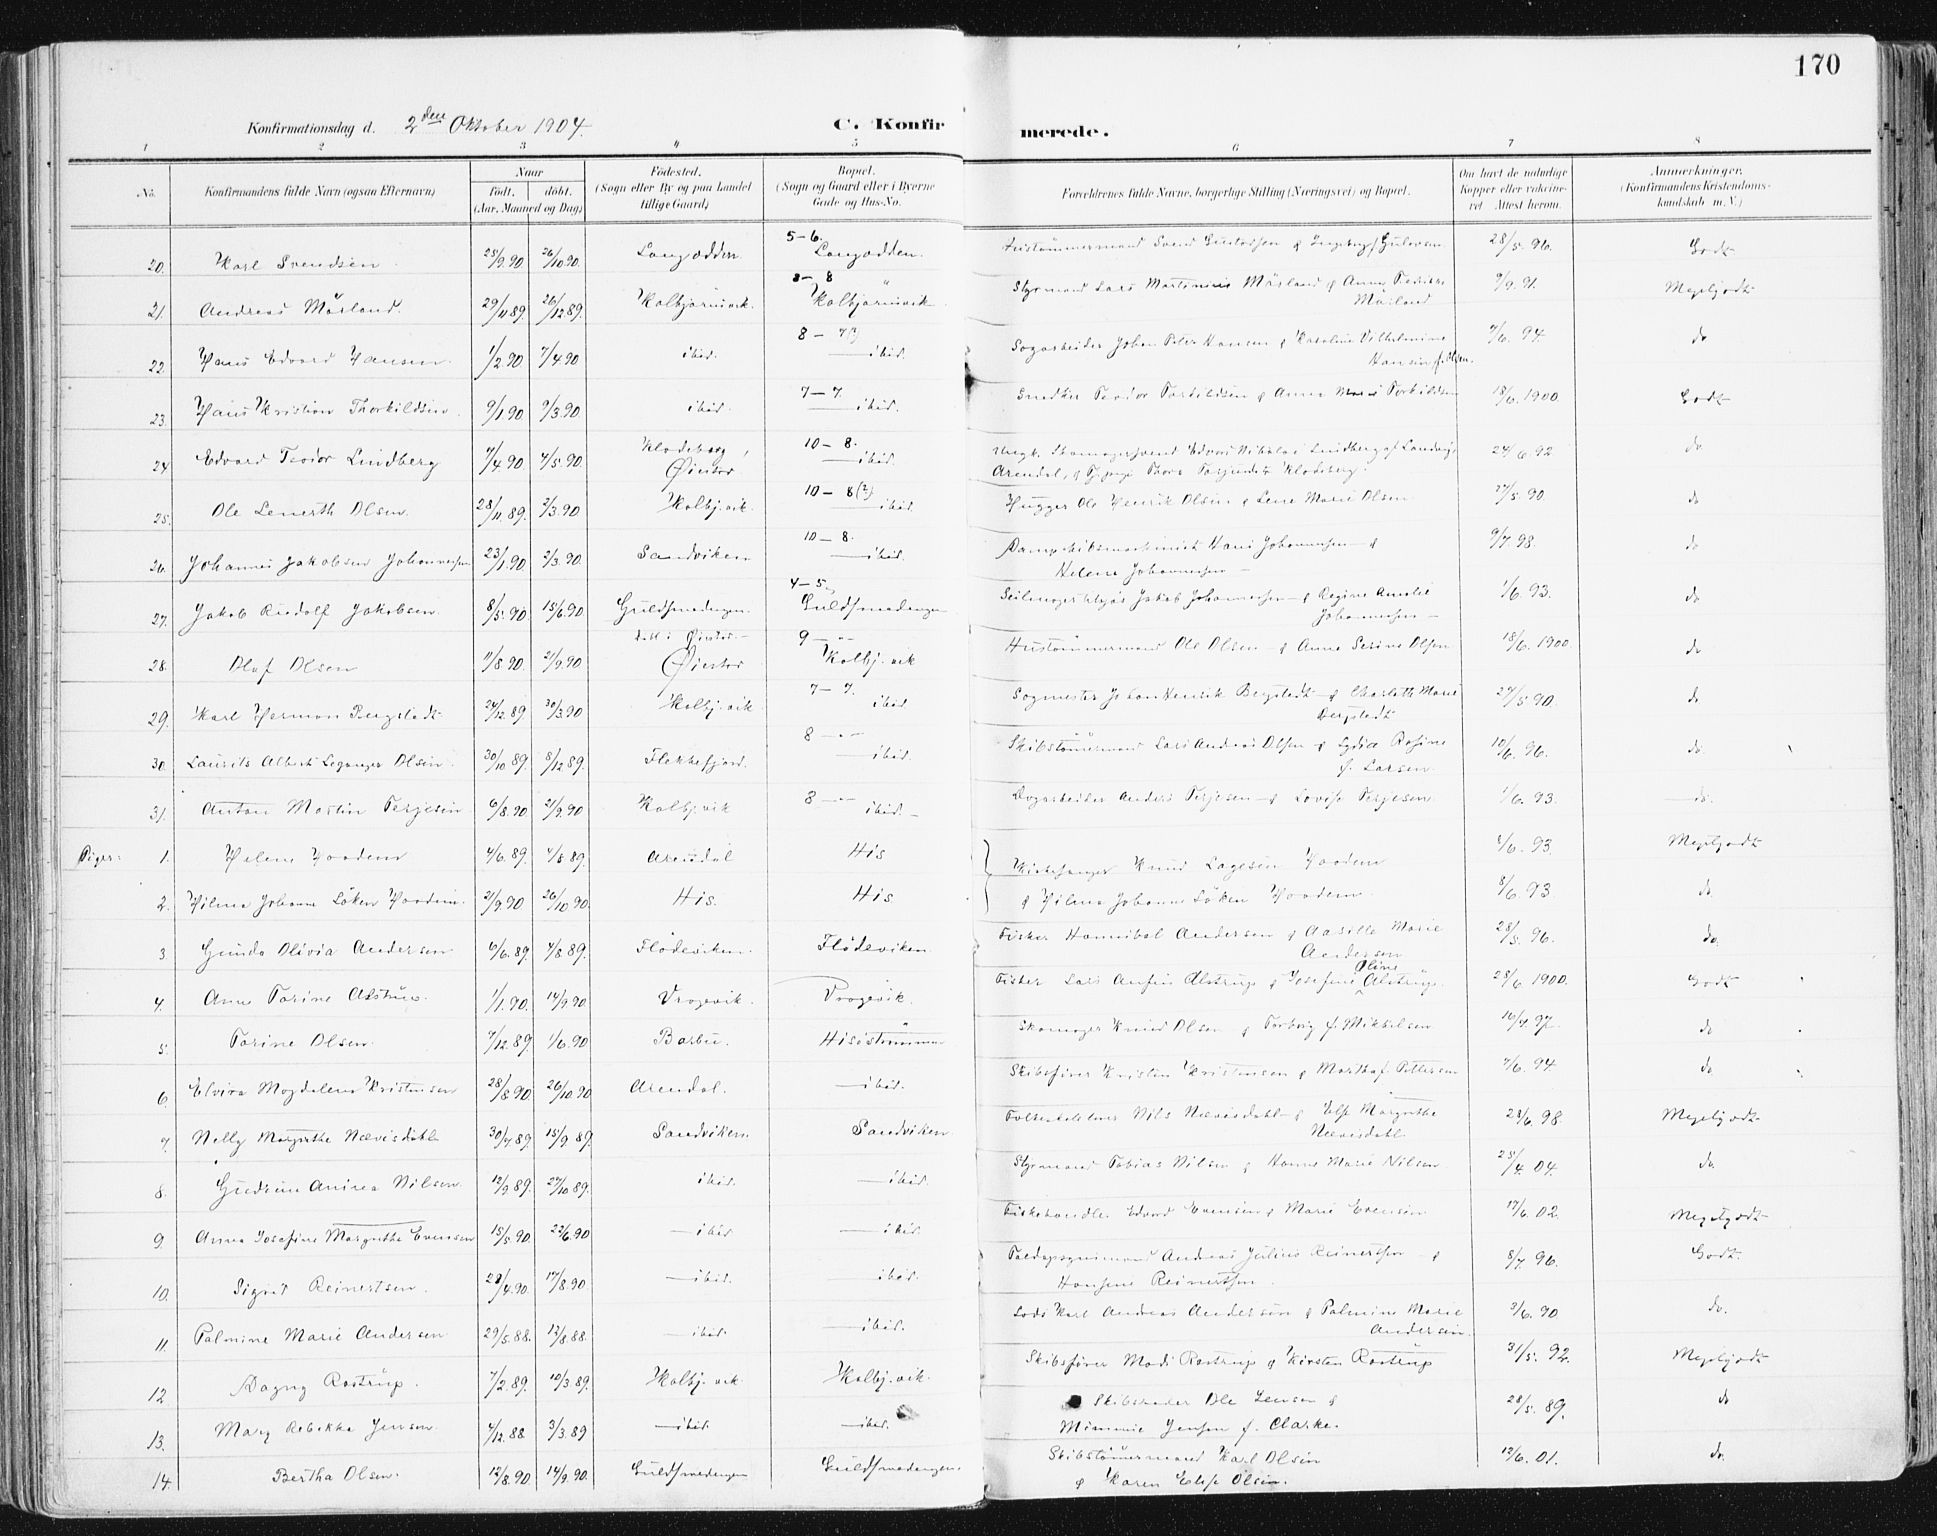 170
Konfirmationsdag d. 2den Oktober 1904.
C. Konfirmerede.
1 2 3 4 5 6 7 8
No. Konfirmandens fulde Navn (ogsaa Efternavn) Naar født, døbt. (Aar, Maaned og Dag) Fødested. (Sogn eller By og paa Landet tillige Gaard) Bopæl. (Sogn og Gaard eller i Byerne Gade og Hus-No. Forældrenes fulde Navne, borgerlige Stilling (Næringsvei) og Bopæl. Om havt de naturlige Kopper eller vaccineret Attest herom. Anmærkninger. (Konfirmandens Kristendomskundskab m. V.)
5-6.
20. Karl Svendsen 25/9.90 26/10.90 Langodden Langodden. 28/5.96. Godt
8-8
21. Andreas Mårland. 29/11.89 26/12.89 Kolbjørnsvik. Kolbjørnsvik Styrmand Lars Martinius Mårland & Anna Fredrikke Mårland 9/9.91. Megetgodt
8-7(?)
22. Hans Edvard Hansen 1/2.90 7/4.90 ibid. ibid. Sagarbeider Johan Peter Hansen & Karoline Vilhelmine Hansen f. Olsen. 7/6.94. do
7-7.
23. Hans Kristian Thorkildsen 9/1.90 9/3.90 ibid. ibid. Snedker Teodor Torkildsen & Anna Marie Torkildsen 18/6.1900 Godt
10-8.
24 Edvard Teodor Lindberg 7/4.90 4/5.90. Klodeborg, Øiestad ibid. 24/6.92 do
Arendal, &
10-8(2)
25. Ole Lenerth Olsen. 28/11.89. 2/3.90 Kolbj.vik. ibid. Hugger Ole Henrik Olsen & Lene Marie Olsen 27/5.90. do
10-8.
26. Johannes Jakobsen Johannessen 23/1.90 2/3.90. Sandviken ibid. Dampskibsmaskinist Hans Johannessen & Helene Johannessen 9/7.98. do
4-5
27. Jakob Rudolf Jakobsen 8/5.90 15/6.90 Guldsmedengen Guldsmedengen Jakob Johannessen & Regine Amalie Johannessen 1/6.93. do
9
28. Olaf Olsen 11/8.90 21/9.90 døbt i Øiestad Øiestad Kolbj.vik Hustømmermand Ole Olsen & Anne Serine Olsen 18/6.1900 do
7-7.
29. Karl Herman Bergstedt 24/12.89. 30/3.90 Kolbj.vik ibid. Sagmester Johan Henrik Bergstedt & Charloth Marie Bergstedt 27/5.90. do
8
30. Laurits Albert Leganger Olsen 30/10.89. 8/12.89. Flekkefjord. ibid. Skibstømmermand Lars Andreas Olsen & Lydia Rosine f. Larsen. 10/6.96. do.
8
31. Anton Martin Terjesen 6/8.90 21/9.90 Kolbj.vik ibid. Anders Terjesen & Lovise Terjesen. 1/6.93. do.
Piger: 1. Helene Hordem 4/6.89. 4/8.89. Arendal His Kirkesanger Knud Lagesen Hordem 8/6.93. Megetgodt
2. Hilma Johanne Løken Hordem. 21/9.90 26/10.90. His. His & Hilma Johanne Løken Hordem. 8/6.93 do.
3. Gunda Olivia Andersen 6/6.89. 4/8.89. Flødeviken. Flødeviken. Fisker Hannibal Andersen & Aasille Marie Andersen 28/5.96. do.
4. Anna Torine Alstrup. 1/1.90. 14/9.90 Vragevik. Vragevik. Fisker Lars Anfin Alstrup & Josefine Oline Alstrup. 28/6.1900. Godt
5. Torine Olsen 7/12.89. 1/6.90 Barbu. Hisøstrømmen Skomager Knud Olsen & Torborg f. Mikkelsen 16/7.97. do
6. Elvira Magdalena Kristensen 28/8.90. 26/10.90 Arendal. ibid. Skibsfører Kristen Kristensen & Martha f. Pettersen 7/6.94 do
7. Nelly Margrethe Nævisdahl 30/7.89. 15/9.89. Sandviken. Sandviken Nils Nævisdahl & Else Margrethe Nævisdahl 28/6.98 Megetgodt
8. Gudrun Anina Nilsen. 12/9.89. 27/10.89. ibid. ibid. Styrmand Tobias Nilsen & Hanne Marie Nilsen 25/4.04. do.
9. Anna Josefine Margrethe Evensen 15/5.90. 22/6.90 ibid ibid. Fiskehandler Edvard Evensen & Marie Evensen 17/6.02. Megetgodt
10. Sigrid Reinertsen. 28/4.90. 17/8.90. ibid. ibid. Andreas Julius Reinertsen & Hansine Reinertsen. 8/7.96. Godt.
11. Palmine Marie Andersen 29/5.88. 12/8.88. ibid. ibid. Lods Karl Andreas Andersen & Palmine Marie Andersen. 3/6.90 do.
12 Dagny Rostrup. 7/2.89. 10/3.89. Kolbj.vik Kolbj.vik. Skibsfører Mads Rostrup & Kirsten Rostrup 31/5.92. Megetgodt
13. Mary Rebekka Jensen. 4/12.88 3/3.89 ibid. ibid. Skibsreder Ole Jensen & Mimmie Jensen f. Clarke. 28/5.89. do
14. Bertha Olsen. 12/8.90. 14/9.90. Guldsmedengen Guldsmedengen. Skibstømmermand Karl Olsen & Karen Elise Olsen. 12/6.01. do.